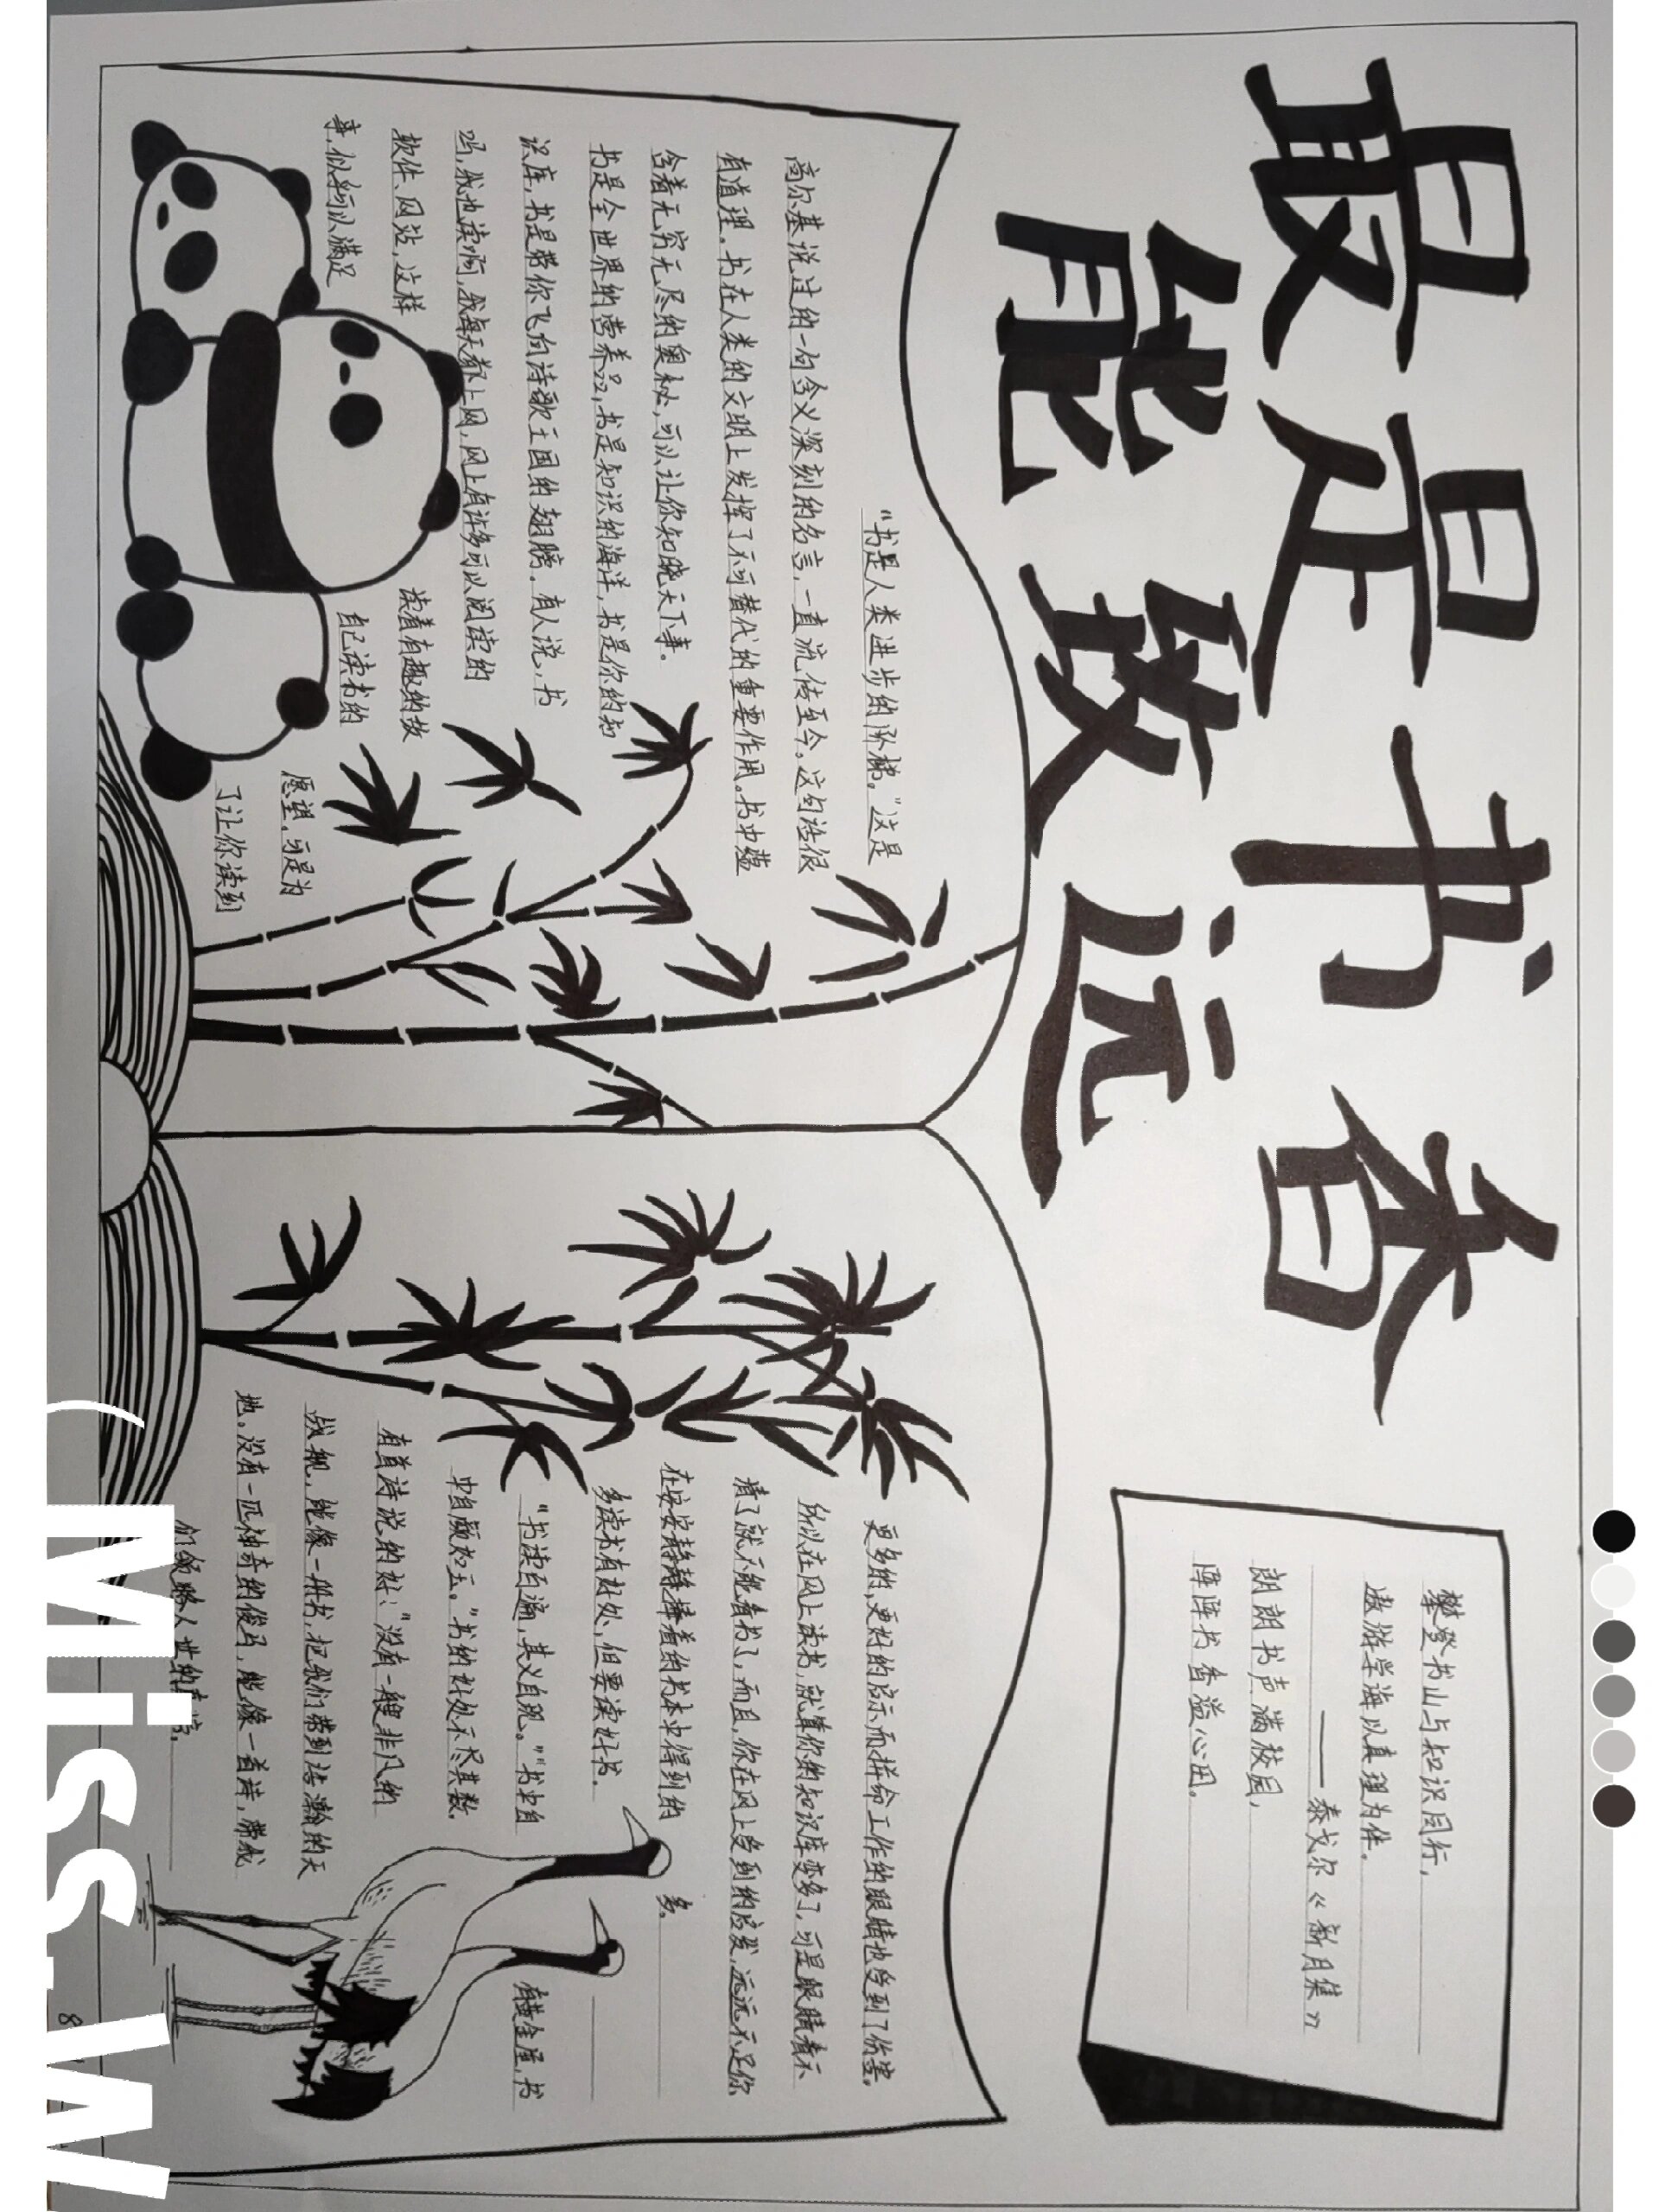 最是书香
能致远
攀登书山与知识同行，
遨游学海以真理为伴。
——泰戈尔《新月集》
朗朗书声满校园，
阵阵书香溢心田。
“书是人类进步的阶梯。”这是
高尔基说过的一句含义深刻的名言，一直流传至今。这句话很
有道理。书在人类的文明上发挥了不可替代的重要作用。书中蕴
含着无穷无尽的奥秘，可以让你知晓天下事。
书是全世界的营养品，书是知识的海洋，书是你的知
识库，书是带你飞向诗歌王国的翅膀。有人说，书
吗，我也读啊，我每天都上网，网上有许多可以阅读的
软件、网站，这样
读着有趣的故
事，似乎可以满足
自己读书的
愿望，可是为
了让你读到
更多的，更好的启示而拼命工作的眼睛也受到了伤害。
所以在网上读书，就算你的知识库变多了，可是眼睛看不
清了就不能看书了，而且，你在网上受到的启发，远远不足你
在安安静静捧着的书本中得到的
多。
多读书有好处，但要读好书。
“书读百遍，其义自现。”“书中自
有黄金屋，书
中自颜如玉。”书的好处不尽其数。
有首诗说的好：“没有一艘非凡的
战舰，能像一册书，把我们带到浩瀚的天
地。没有一匹神奇的俊马，能像一首诗，带我
们领略人世的真谛。
(Miss_W
8